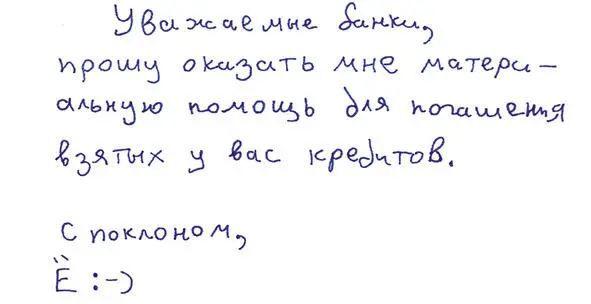 Уважаемые банки,
прошу оказать мне матери-
альную помощь для погашения
взятых у вас кредитов.
С поклоном,
Ё :-)